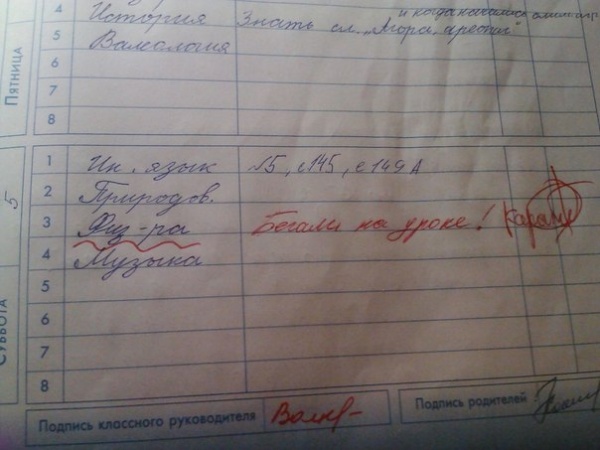 ПЯТНИЦА
4 История Знать сл. „Мора, ареопаг"
и когда начались олимп. игр
5 Валеология
6
7
8
СУББОТА
5
1 Ин. язык №5, с145, с149А
2 Природов.
3 Физ-ра Бегали на уроке!
4 Музыка
5
6
7
8
Подпись классного руководителя
Подпись родителей